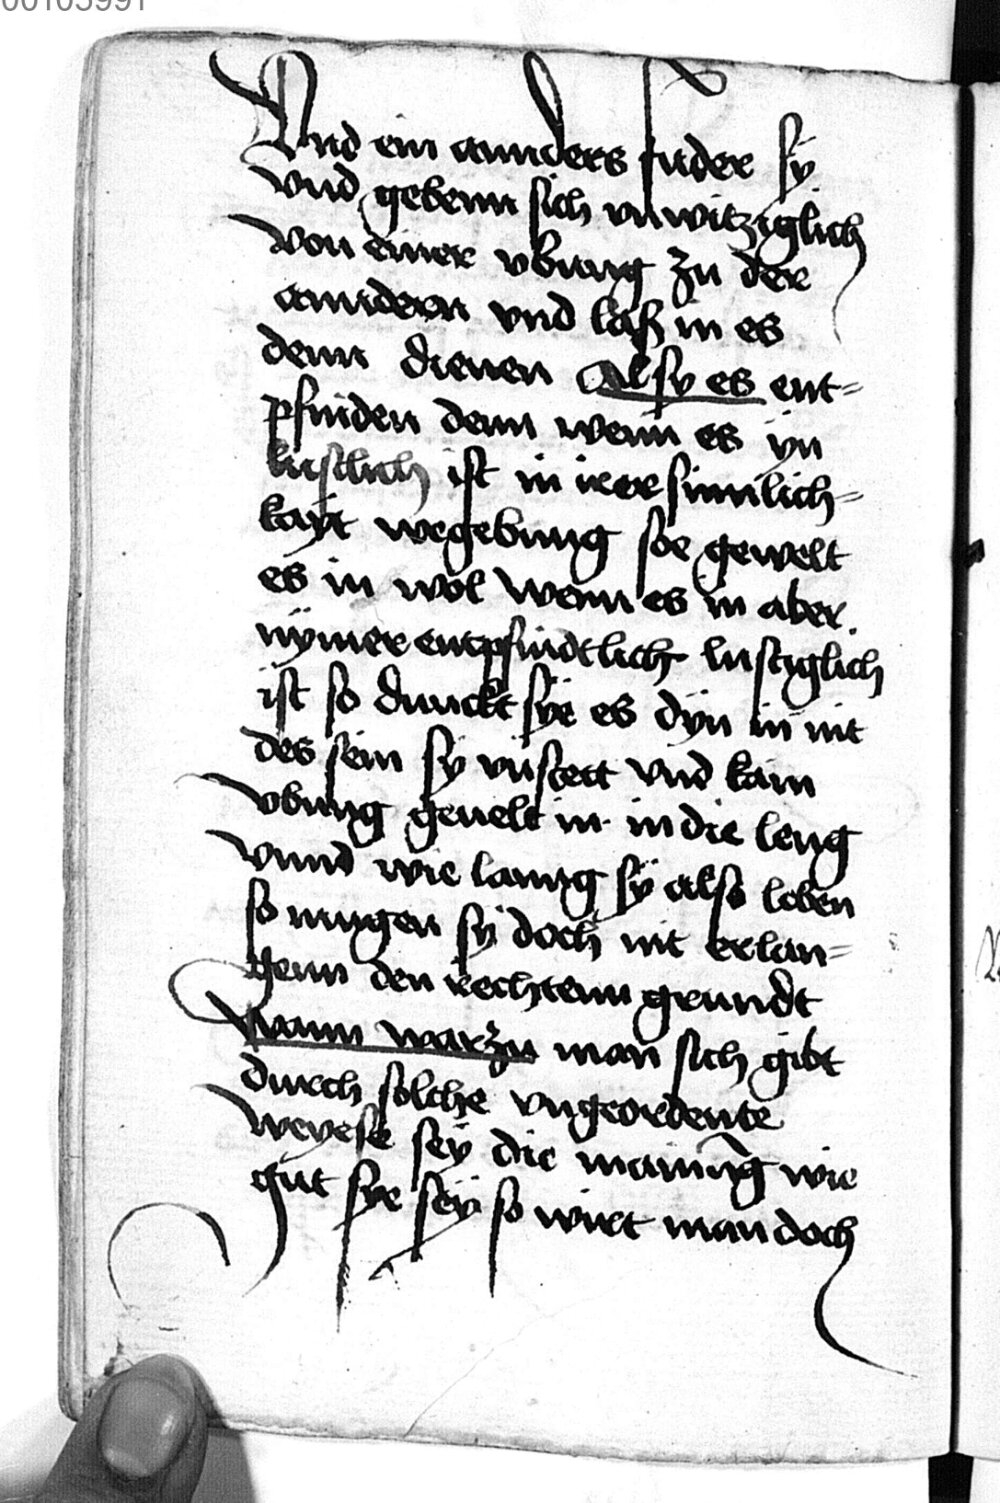 00105991
Vnd ein annders fnder sy
vnd gebenn sich vnwitziglich
von einer vbung zu der
anndern vnd laß in es
denn dienen Al sy es ent=
pfinden denn wenn es yn
lustlich ist in irer sinnlich=
kayt wegebung soe gewelt
es in wol wenn es in aber
nÿmer entpfindtlich lustiglich
ist so dunckt sye es dyn in nit
des sein sÿ vnstett vnd kain
vbung geuelt in in die leng
vnnd wie lanng sÿ also leben
so mugen sÿ doch nit erlan=
genn den rechtenn grundt
wann warzu man sich gibt
durch solche vngeordente
weyese seÿ die mainūg wie
gut sye seÿ so wirt man doch